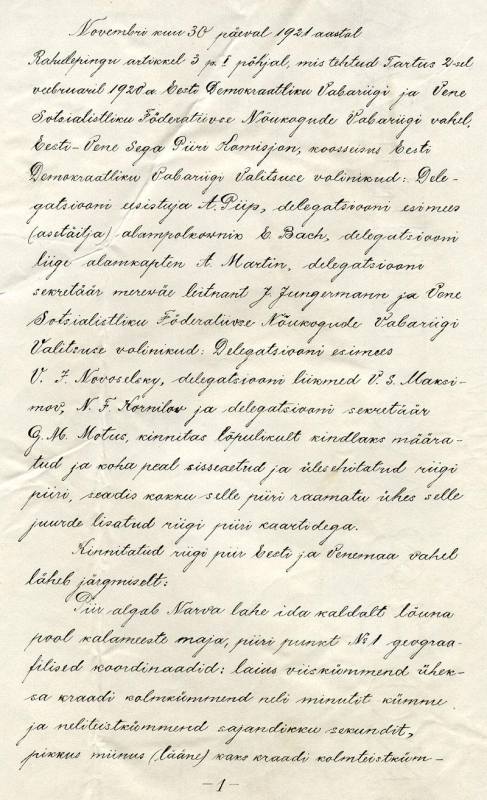 Novembri kuu 30 päeval 1921 aastal
Rahulepingu artikkel 3 p. I põhjal, mis tehtud Tartus 2-sel
veebruaril 1920 a. Eesti Demokraatliku Vabariigi ja Vene
Sotsialistliku Föderatiivse Nõukogude Vabariigi vahel,
Eesti-Vene Sega Piiri Komisjon, koosseisus Eesti
Demokraatliku Vabariigi Valitsuse volinikud: Dele-
gatsiooni esistuja A. Piip, delegatsiooni esimees
(asetäitja) alampolkovnik E. Bach, delegatsiooni
liige alamkapten A. Martin, delegatsiooni
sekretäär mereväe leitnant J. Jungermann ja Vene
Sotsialistliku Föderatiivse Nõukogude Vabariigi
Valitsuse volinikud: Delegatsiooni esimees
V. F. Novoselsky, delegatsiooni liikmed V. S. Maksi-
mov, N. F. Kornilov ja delegatsiooni sekretäär
G. M. Motus, kinnitas lõpulikult kindlaks määra-
tud ja koha peal sisseaetud ja ülesehitatud riigi
piiri, seadis kokku selle piiri raamatu ühes selle
juurde lisatud riigi piiri kaartidega.
Kinnitatud riigi piir Eesti ja Venemaa vahel
läheb järgmiselt:
Piir algab Narva lahe ida kaldalt lõuna
pool kalameeste maja, piiri punkt № 1 geograa-
filised koordinaadid: laius viiskümmend ühek-
sa kraadi kolmkümmend neli minutit kümme
ja neliteistkümmend sajandikku sekundit,
pikkus miinus (lääne) kaks kraadi kolmteistküm-
-1-